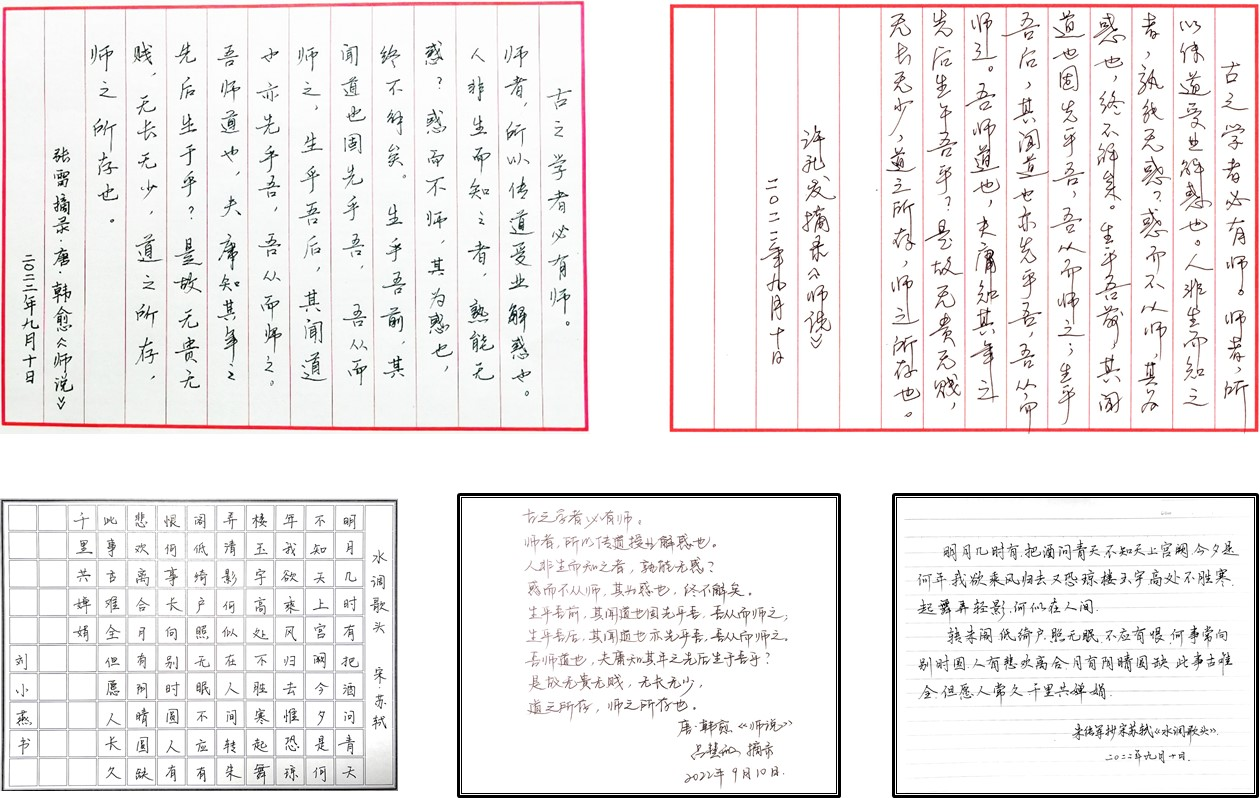 古之学者必有师。
师者，所以传道受业解惑也。
人非生而知之者，熟能无
惑？惑而不师，其为惑也，
终不解矣。生乎吾前，其
闻道也固先乎吾，吾从而
师之，生乎吾后，其闻道
也亦先乎吾，吾从而师之。
吾师道也，夫庸知其年之
先后生于乎？是故无贵无
贱，无长无少，道之所存，
师之所存也。
张雷摘录·唐·韩愈《师说》
二〇二二年九月十日
古之学者必有师。师者，所
以传道受业解惑也。人非生而知之
者，孰能无惑？惑而不从师，其为
惑也，终不解矣。生乎吾前，其闻
道也固先乎吾，吾从而师之；生乎
吾后，其闻道也亦先乎吾，吾从而
师之。吾师道也，夫庸知其年之
先后生于吾乎？是故无贵无贱，
无长无少，道之所存，师之所存也。
许孔发摘录《师说》
二〇二二年九月十日
水调歌头 宋·苏轼
明月几时有把酒问青天
不知天上宫阙今夕是何
年我欲乘风归去惟恐琼
楼玉宇高处不胜寒起舞
弄清影何似在人间转朱
阁低绮户照无眠不应有
恨何事长向别时圆人有
悲欢离合月有阴晴圆缺
此事古难全但愿人长久
千里共婵娟
刘小燕书
古之学者必有师。
师者，所以传道授业解惑也。
人非生而知之者，孰能无惑？
惑而不从师，其为惑也，终不解矣。
生乎吾前，其闻道也固先乎吾，吾从而师之；
生乎吾后，其闻道也亦先乎吾，吾从而师之。
吾师道也，夫庸知其年之先后生于吾乎？
是故无贵无贱，无长无少，
道之所存，师之所存也。
唐·韩愈《师说》
吕慧 摘录
2022年9月10日.
明月几时有，把酒问青天，不知天上宫阙，今夕是
何年，我欲乘风归去，又恐琼楼玉宇，高处不胜寒，
起舞弄轻影，何似在人间。
转朱阁，低绮户，照无眠，不应有恨，何事常向
别时圆，人有悲欢离合，月有阴晴圆缺，此事古难
全，但愿人常久，千里共婵娟.
朱伟军抄宋苏轼《水调歌头》.
二〇二二年九月十日.